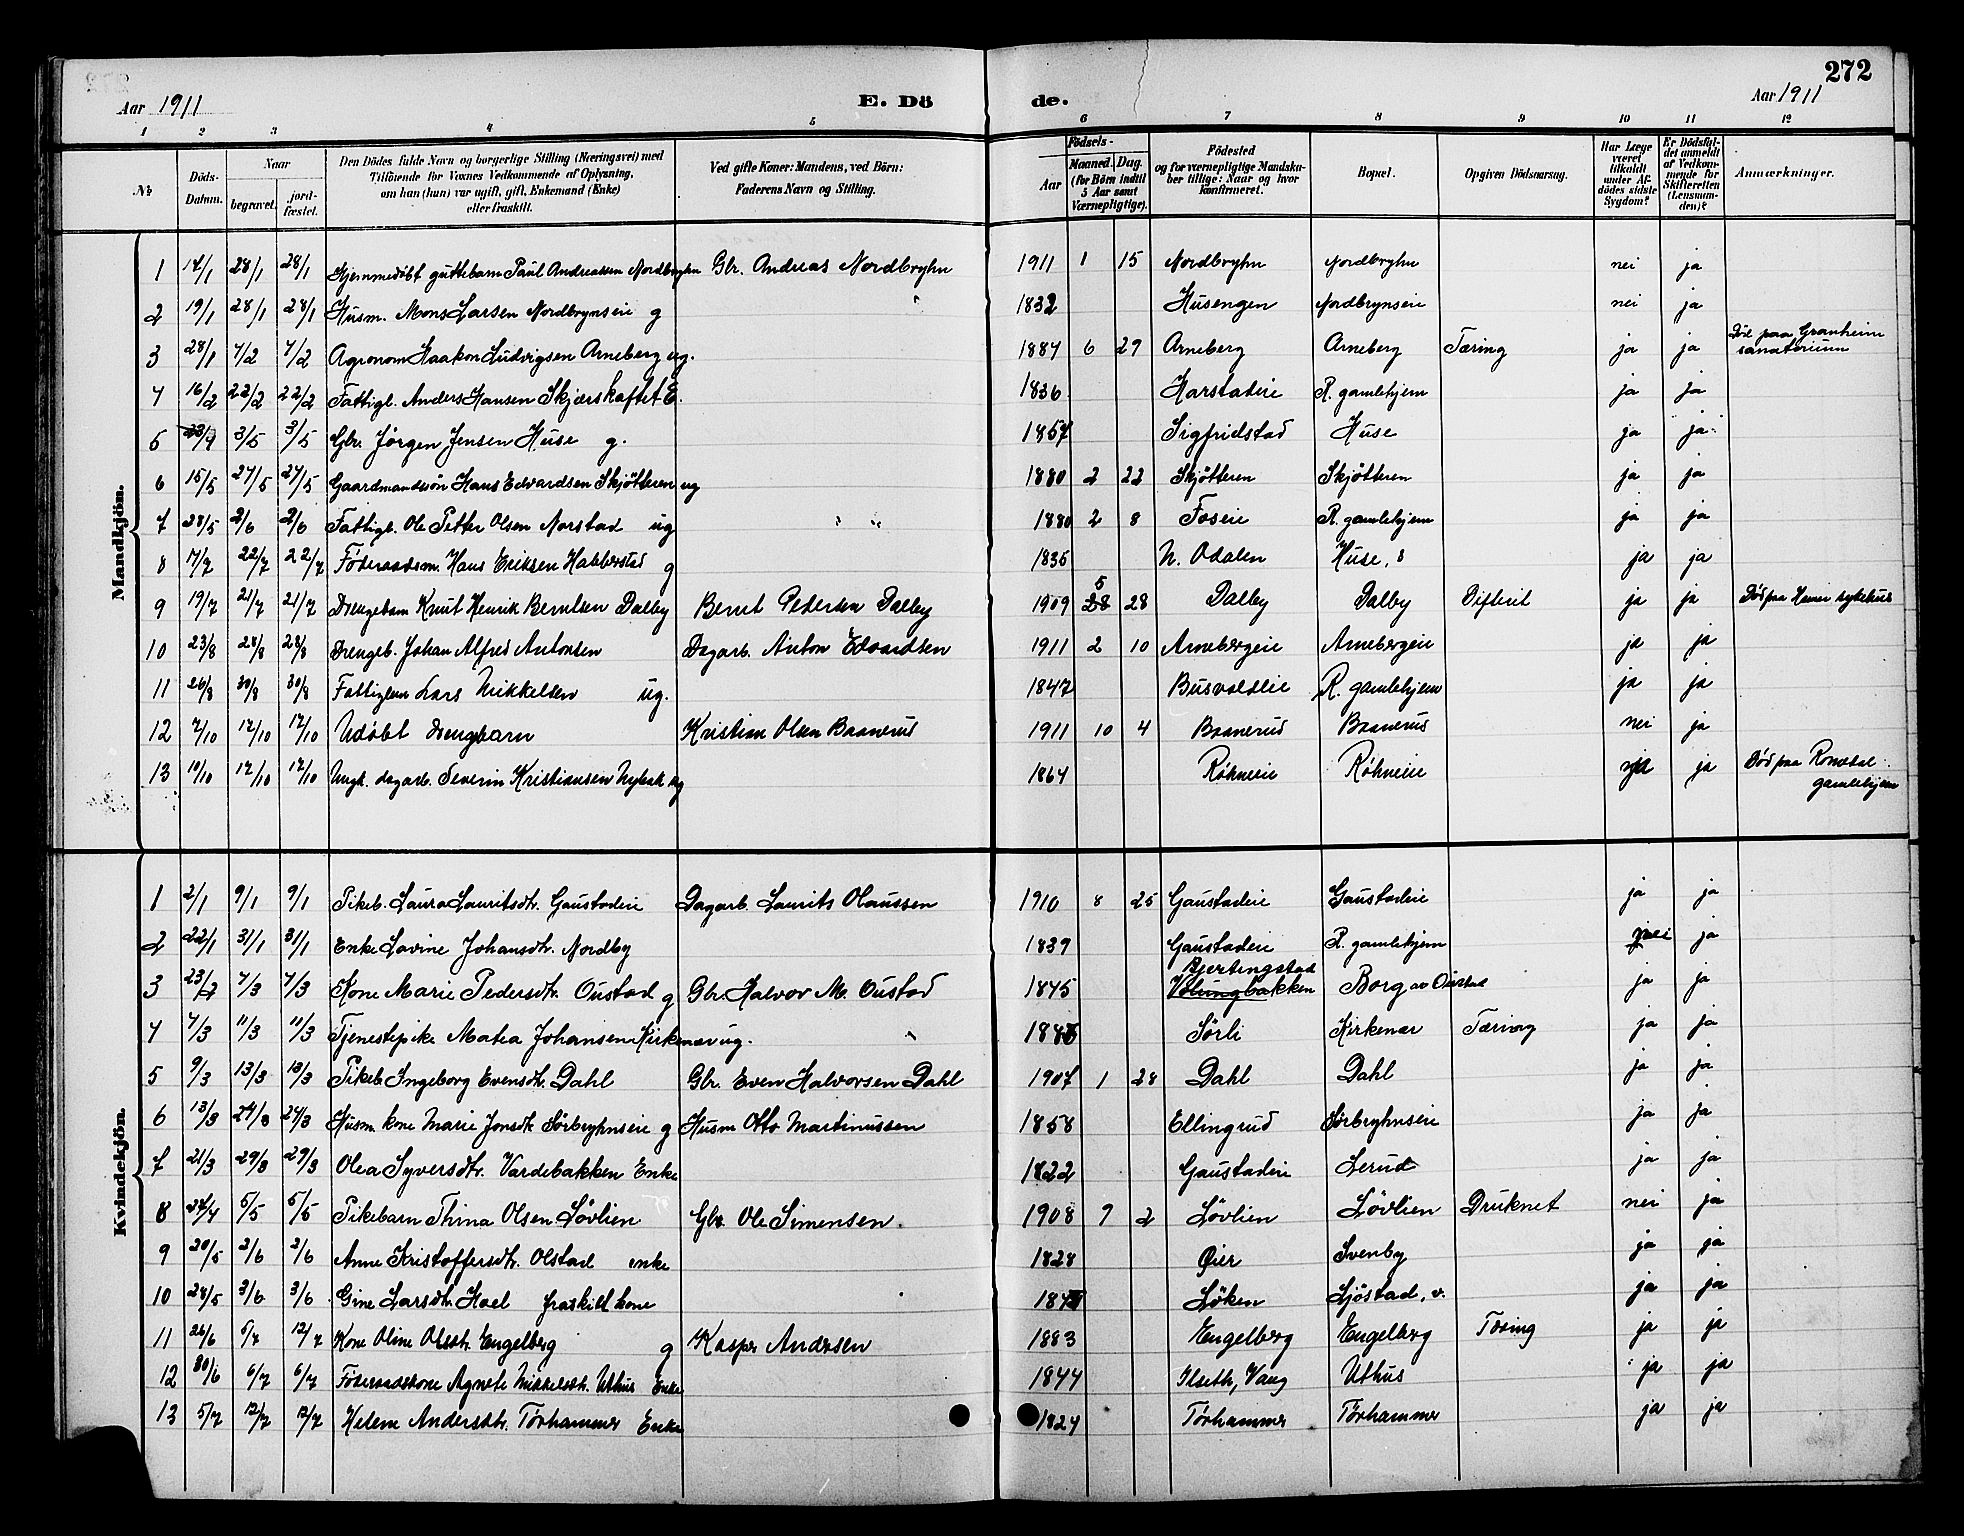 272
Aar 1911 E. Dö de. Aar 1911
1 2 3 4 5 6 7 8 9 10 11 12
№ Döds-Datum. Naar begravet. jordfæstet. Den Dödes fulde Navn og borgerlige Stilling (Næringsvei) med Tilföiende for Voxnes Vedkommende af Oplysning, om han (hun) var ugift, gift, Enkemand (Enke) eller fraskilt. Ved gifte Koner: Mandens, ved Börn: Faderens Navn og Stilling. Födsels- Aar Maaned. Dag. (for Börn indtil 5 Aar samt Værnepligtige). Födested og for værnepligtige Mandskaber tillige: Naar og hvor konfirmeret. Bopæl. Opgiven Dödsaarsag. Har Læge været tilkaldt under Afdödes sidste Sygdom? Er Dödsfaldet anmeldt af Vedkommende for Skifteretten (Lensmanden)? Anmærkninger.
Mandkjön.
1 14/1 28/1 28/1 Hjemmedöbt guttebarn Paul Andreassen Nordbryhn Gbr. Andreas Nordbryhn 1911 1 15 Nordbryhn Nordbryhn nei ja
2 19/1 28/1 28/1 Husm. Mons Larsen Nordbrynseie g 1832 Husengen Nordbrynseie nei ja
3 28/1 7/2 7/2 Agronom Haakon Ludvigsen Arneberg ug. 1887 6 29 Arneberg Arneberg Tæring ja ja Död paa Granheim sanatorium
4 16/2 22/2 22/2 Fattigl. Anders Hansen Skjærskaftet E. 1836 Harstadeie R. gamlehjem ja ja
5 23/4 3/5 3/5 Gbr. Jørgen Jensen Huse g. 1857 Sigfridstad Huse ja ja
6 15/5 27/5 27/5 Gaardmandssön Hans Edvardsen Skjøtteren ug 1880 2 22 Skjøtteren Skjøtteren ja ja
7 28/5 2/6 2/6 Fattigl. Ole Petter Olsen Norstad ug 1880 2 8 Foseie R. gamlehjem ja ja
8 17/7 22/7 22/7 Føderaadsm. Hans Eriksen Habberstad g 1835 N. Odalen Huse, s ja ja
9 19/7 21/7 21/7 Drengebarn Knut Henrik Berntsen Dalby Bernt Pedersen Dalby 1909 5 28 28 Dalby Dalby Difterit ja ja Död paa Hamar sykehus
10 23/8 28/8 28/8 Drengeb. Johan Alfred Antonsen Dagarb. Anton Edvardsen 1911 2 10 Arnebergeie Arnebergeie ja ja
11 26/8 30/8 30/8 Fattiglem Lars Mikkelsen ug. 1847 Busvoldeie R. gamlehjem ja ja
12 7/10 17/10 17/10 Udöbt Drengbarn Kristian Olsen Baanerud 1911 10 4 Baanerud Baanerud nei ja
13 10/10 17/10 17/10 Ungk. dagarb. Severin Kristiansen Nybakk ug 1864 Røhneeie Røhneeie ja ja Død paa Romedal gamlehjem
Kvindekjön.
1 2/1 9/1 9/1 Pikeb. Laura Lauritsdtr. Gaustadeie Dagarb. Laurits Olaussen 1910 8 25 Gaustadeie Gaustadeie ja ja
2 22/1 31/1 31/1 Enke Lovine Johansdtr. Nordby 1839 Gaustadeie R. gamlehjem nei ja
3 23/2 7/3 7/3 Kone Marie Pedersdtr. Oustad g Gbr. Halvor M. Oustad 1845 Bjertingstad Volungbakken Borg av Oustad ja ja
4 4/3 11/3 11/3 Tjenestepike Matea Johansen Kirkenær ug. Sörli Kirkenær Tæring ja ja
5 9/3 13/3 13/3 Pikeb. Ingeborg Evensdtr. Dahl Gbr. Even Halvorsen Dahl 1907 1 28 Dahl Dahl ja ja
6 13/3 24/3 24/3 Husm. kone Marie Jonsdtr Sörbryhnseie g Husm Otto Martinussen 1858 Ellingrud Sörbryhnseie ja ja
7 21/3 29/3 29/3 Olea Syversdtr. Vardebakken Enke 1822 Gaustadeie Lerud ja ja
8 24/4 5/5 5/5 Pikebarn Thina Olsen Løvlien Gbr. Ole Simensen. 1908 9 2 Løvlien Løvlien Druknet nei ja
9 20/5 2/6 2/6 Anne Kristoffersdtr. Olstad enke 1828 Øier Svenby ja ja
10 28/5 3/6 3/6 Gine Larsdtr. Hoel fraskilt kone Løken Ljøstad, v. ja ja
11 26/6 5/7 12/7 Kone Oline Olsdtr. Engelberg g Kasper Andersen 1883 Engelberg Engelberg Tæring ja ja
12 30/6 6/7 6/7 Føderaadskone Agnete Mikkelsdtr. Uthus Enke 1844 Ilseth, Vang Uthus ja ja
13 5/7 12/7 12/7 Helene Andersdtr. Törhammer Enke 1824 Törhammer Törhammer ja ja